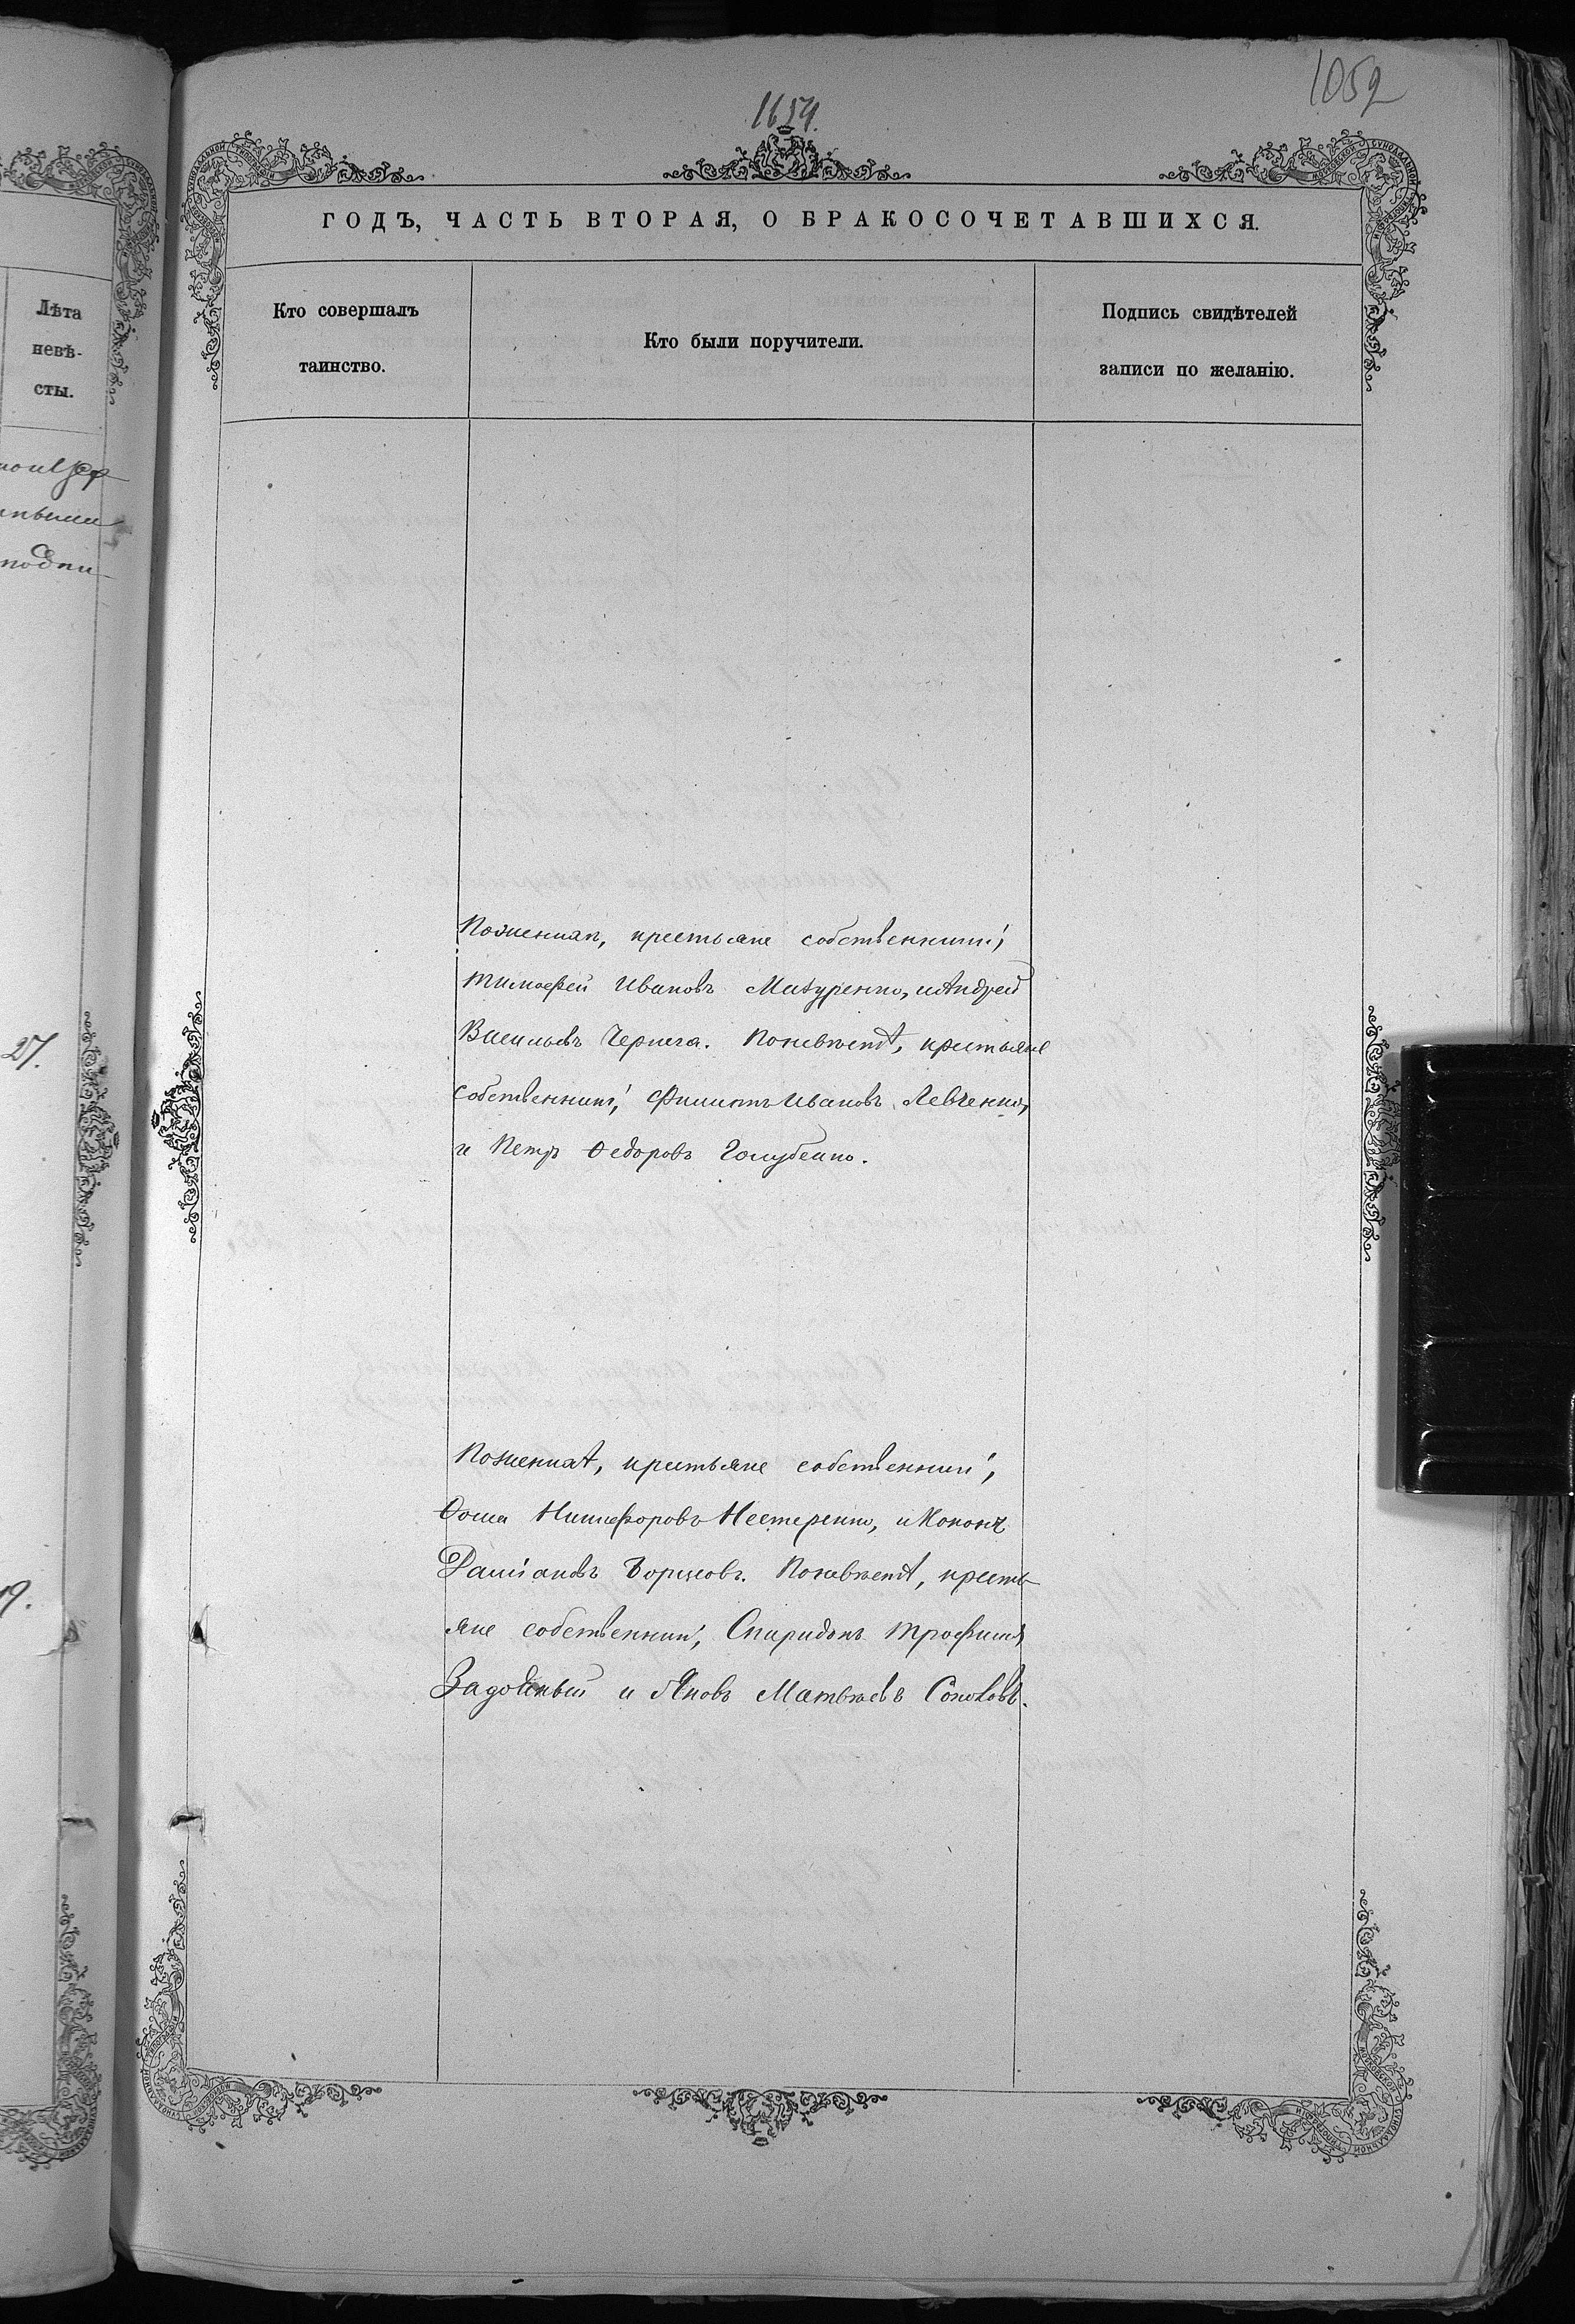 1052
1654.
ГОДЪ, ЧАСТЬ ВТОРАЯ, О БРАКОСОЧЕТАВШИХСЯ.
Лѣта
невѣ-
сты.
подпи
27.
Кто совершалъ
таинство.
Кто были поручители.
Подпись свидѣтелей
записи по желанію.
Поженихѣ, крестьяне собственники,
Тимофей Ивановъ Мазуренко, и Андрей
Васильевъ Чернега. Поневѣстѣ, крестьяне
собственники, Филиппъ Ивановъ Левченко,
и Петръ Ѳедоровъ Голубенко.
Поженихѣ, крестьяне собственники,
Ѳома Никифоровъ Нестеренко, и Кононъ
Даміановъ Борцовъ. Поневѣстѣ, кресть
яне собственники, Спиридонъ Трофимъ
Задовный и Яковъ Матвѣевъ Соколовъ.